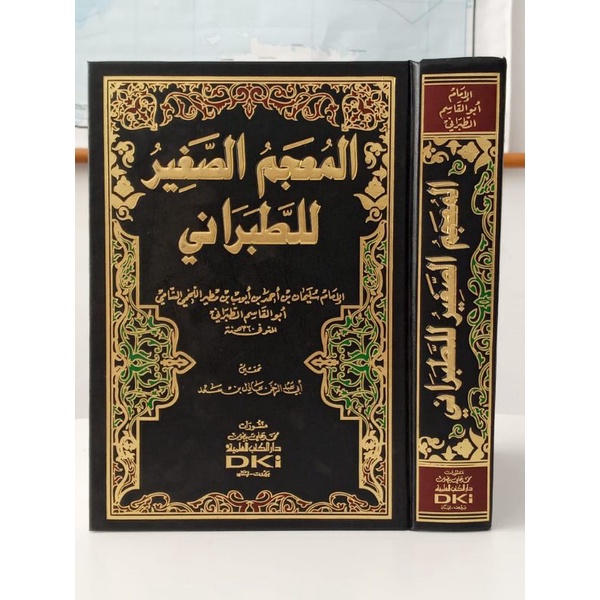 المعجم الصغير
للطبراني
الإمام سليمان بن أحمد بن أيوب بن مطير اللخمي الشامي
أبو القاسم الطبراني
المتوفى ٣٦٠ سنة
تحقيق
أبي عبد الرحمن عادل بن سعد
منشورات
محمد علي بيضون
دار الكتب العلمية
DKi
بيروت - لبنان
الإمام
أبو القاسم
الطبراني
المعجم الصغير للطبراني
منشورات
محمد علي بيضون
دار الكتب العلمية
DKi
بيروت - لبنان